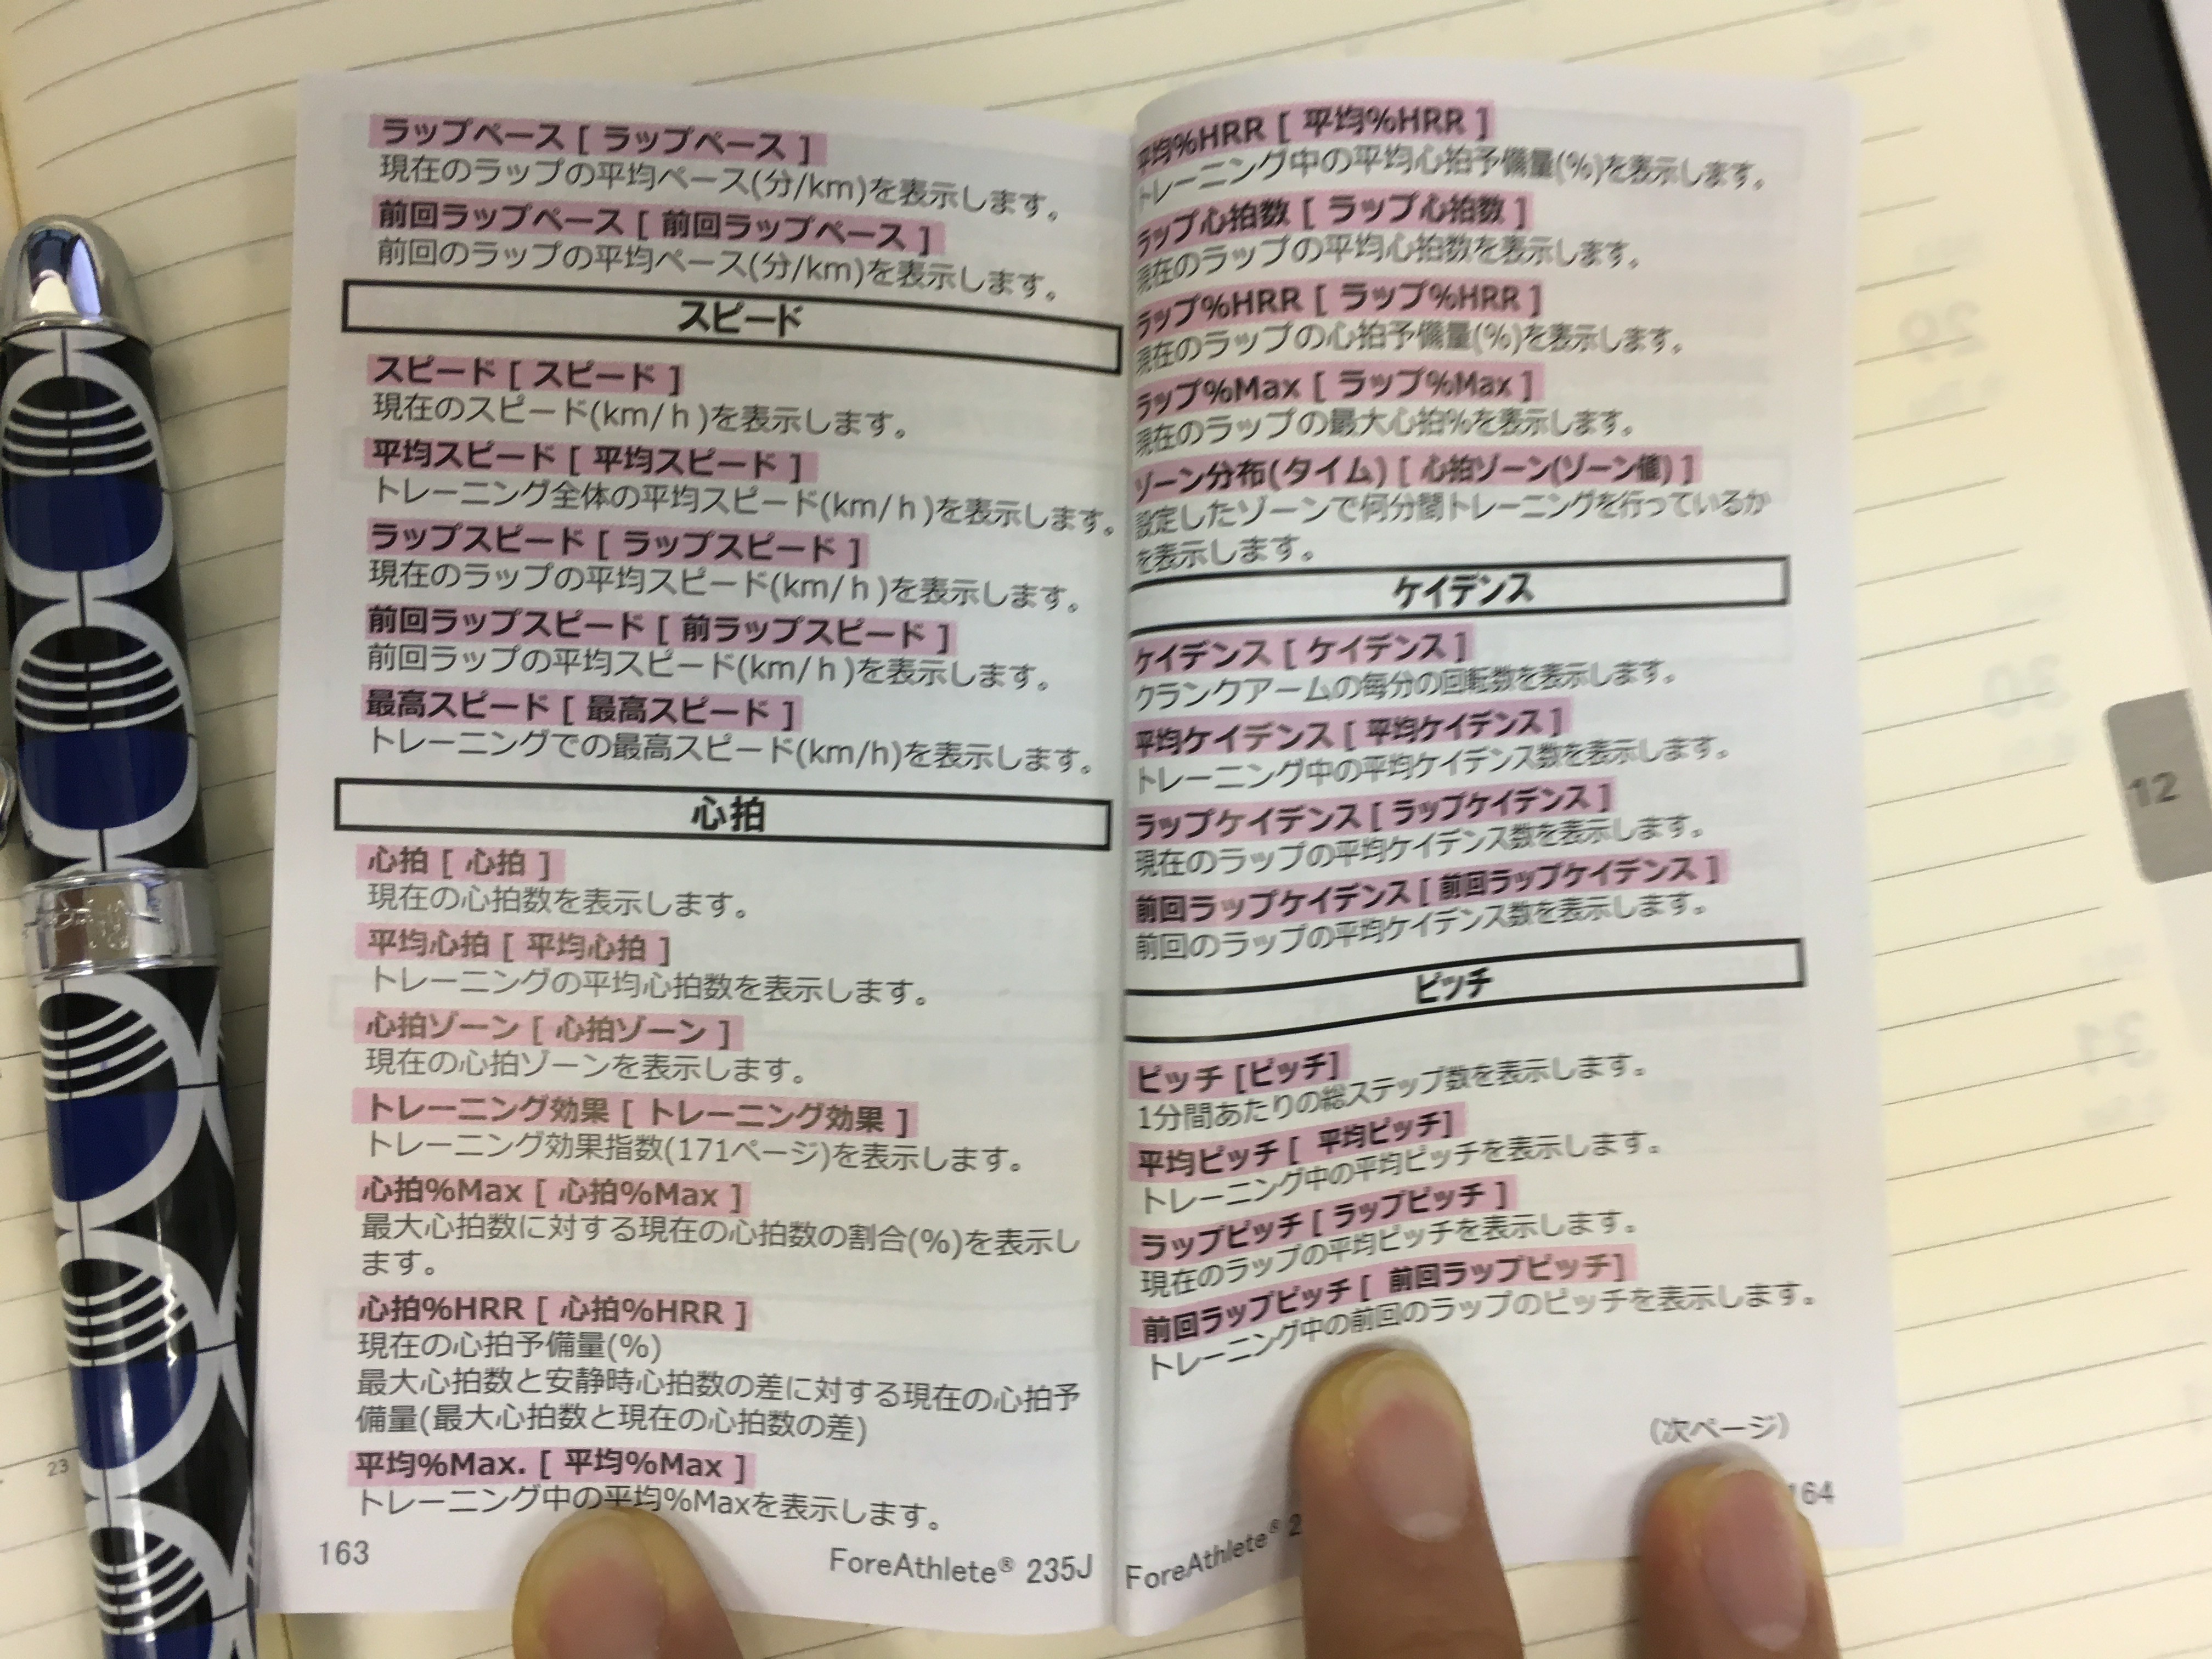 ラップペース [ ラップペース ]
現在のラップの平均ペース(分/km)を表示します。
前回ラップペース [ 前回ラップペース ]
前回のラップの平均ペース(分/km)を表示します。
スピード
スピード [ スピード ]
現在のスピード(km/h)を表示します。
平均スピード [ 平均スピード ]
トレーニング全体の平均スピード(km/h)を表示します。
ラップスピード [ ラップスピード ]
現在のラップの平均スピード(km/h)を表示します。
前回ラップスピード [ 前ラップスピード ]
前回ラップの平均スピード(km/h)を表示します。
最高スピード [ 最高スピード ]
トレーニングでの最高スピード(km/h)を表示します。
心拍
心拍 [ 心拍 ]
現在の心拍数を表示します。
平均心拍 [ 平均心拍 ]
トレーニングの平均心拍数を表示します。
心拍ゾーン [ 心拍ゾーン ]
現在の心拍ゾーンを表示します。
トレーニング効果 [ トレーニング効果 ]
トレーニング効果指数(171ページ)を表示します。
心拍%Max [ 心拍%Max ]
最大心拍数に対する現在の心拍数の割合(%)を表示し
ます。
心拍%HRR [ 心拍%HRR ]
現在の心拍予備量(%)
最大心拍数と安静時心拍数の差に対する現在の心拍予
備量(最大心拍数と現在の心拍数の差)
平均%Max. [ 平均%Max ]
トレーニング中の平均%Maxを表示します。
163
ForeAthlete® 235J
平均%HRR [ 平均%HRR ]
トレーニング中の平均心拍予備量(%)を表示します。
ラップ心拍数 [ ラップ心拍数 ]
現在のラップの平均心拍数を表示します。
ラップ%HRR [ ラップ%HRR ]
現在のラップの心拍予備量(%)を表示します。
ラップ%Max [ ラップ%Max ]
現在のラップの最大心拍%を表示します。
ゾーン分布(タイム) [ 心拍ゾーン(ゾーン値) ]
設定したゾーンで何分間トレーニングを行っているか
を表示します。
ケイデンス
ケイデンス [ ケイデンス ]
クランクアームの毎分の回転数を表示します。
平均ケイデンス [ 平均ケイデンス ]
トレーニング中の平均ケイデンス数を表示します。
ラップケイデンス [ ラップケイデンス ]
現在のラップの平均ケイデンス数を表示します。
前回ラップケイデンス [ 前回ラップケイデンス ]
前回のラップの平均ケイデンス数を表示します。
ピッチ
ピッチ [ピッチ]
1分間あたりの総ステップ数を表示します。
平均ピッチ [ 平均ピッチ]
トレーニング中の平均ピッチを表示します。
ラップピッチ [ ラップピッチ ]
現在のラップの平均ピッチを表示します。
前回ラップピッチ [ 前回ラップピッチ]
トレーニング中の前回のラップのピッチを表示します。
(次ページ)
164
ForeAthlete® 2
12
23